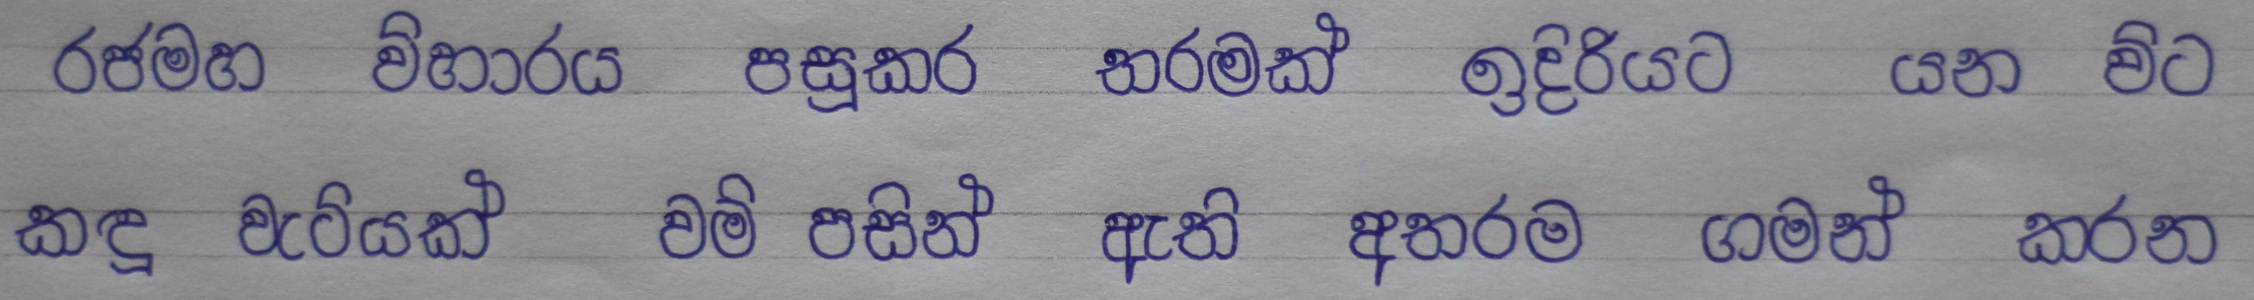 රජමහ විහාරය පසුකර තරමක් ඉදිරියට යන විට
කඳු වැටියක් වම් පසින් ඇති අතරම ගමන් කරන